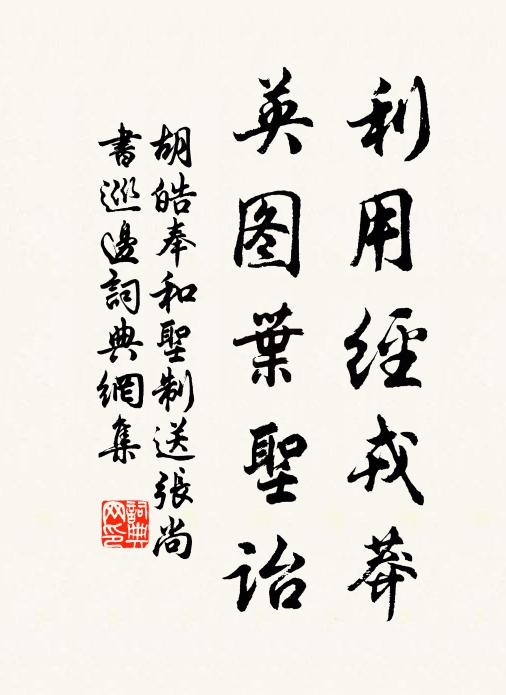 利用經戎莽
英图葉聖詒
胡皓奉和聖制送張尚
書巡邊詞典網集
詞典
网印